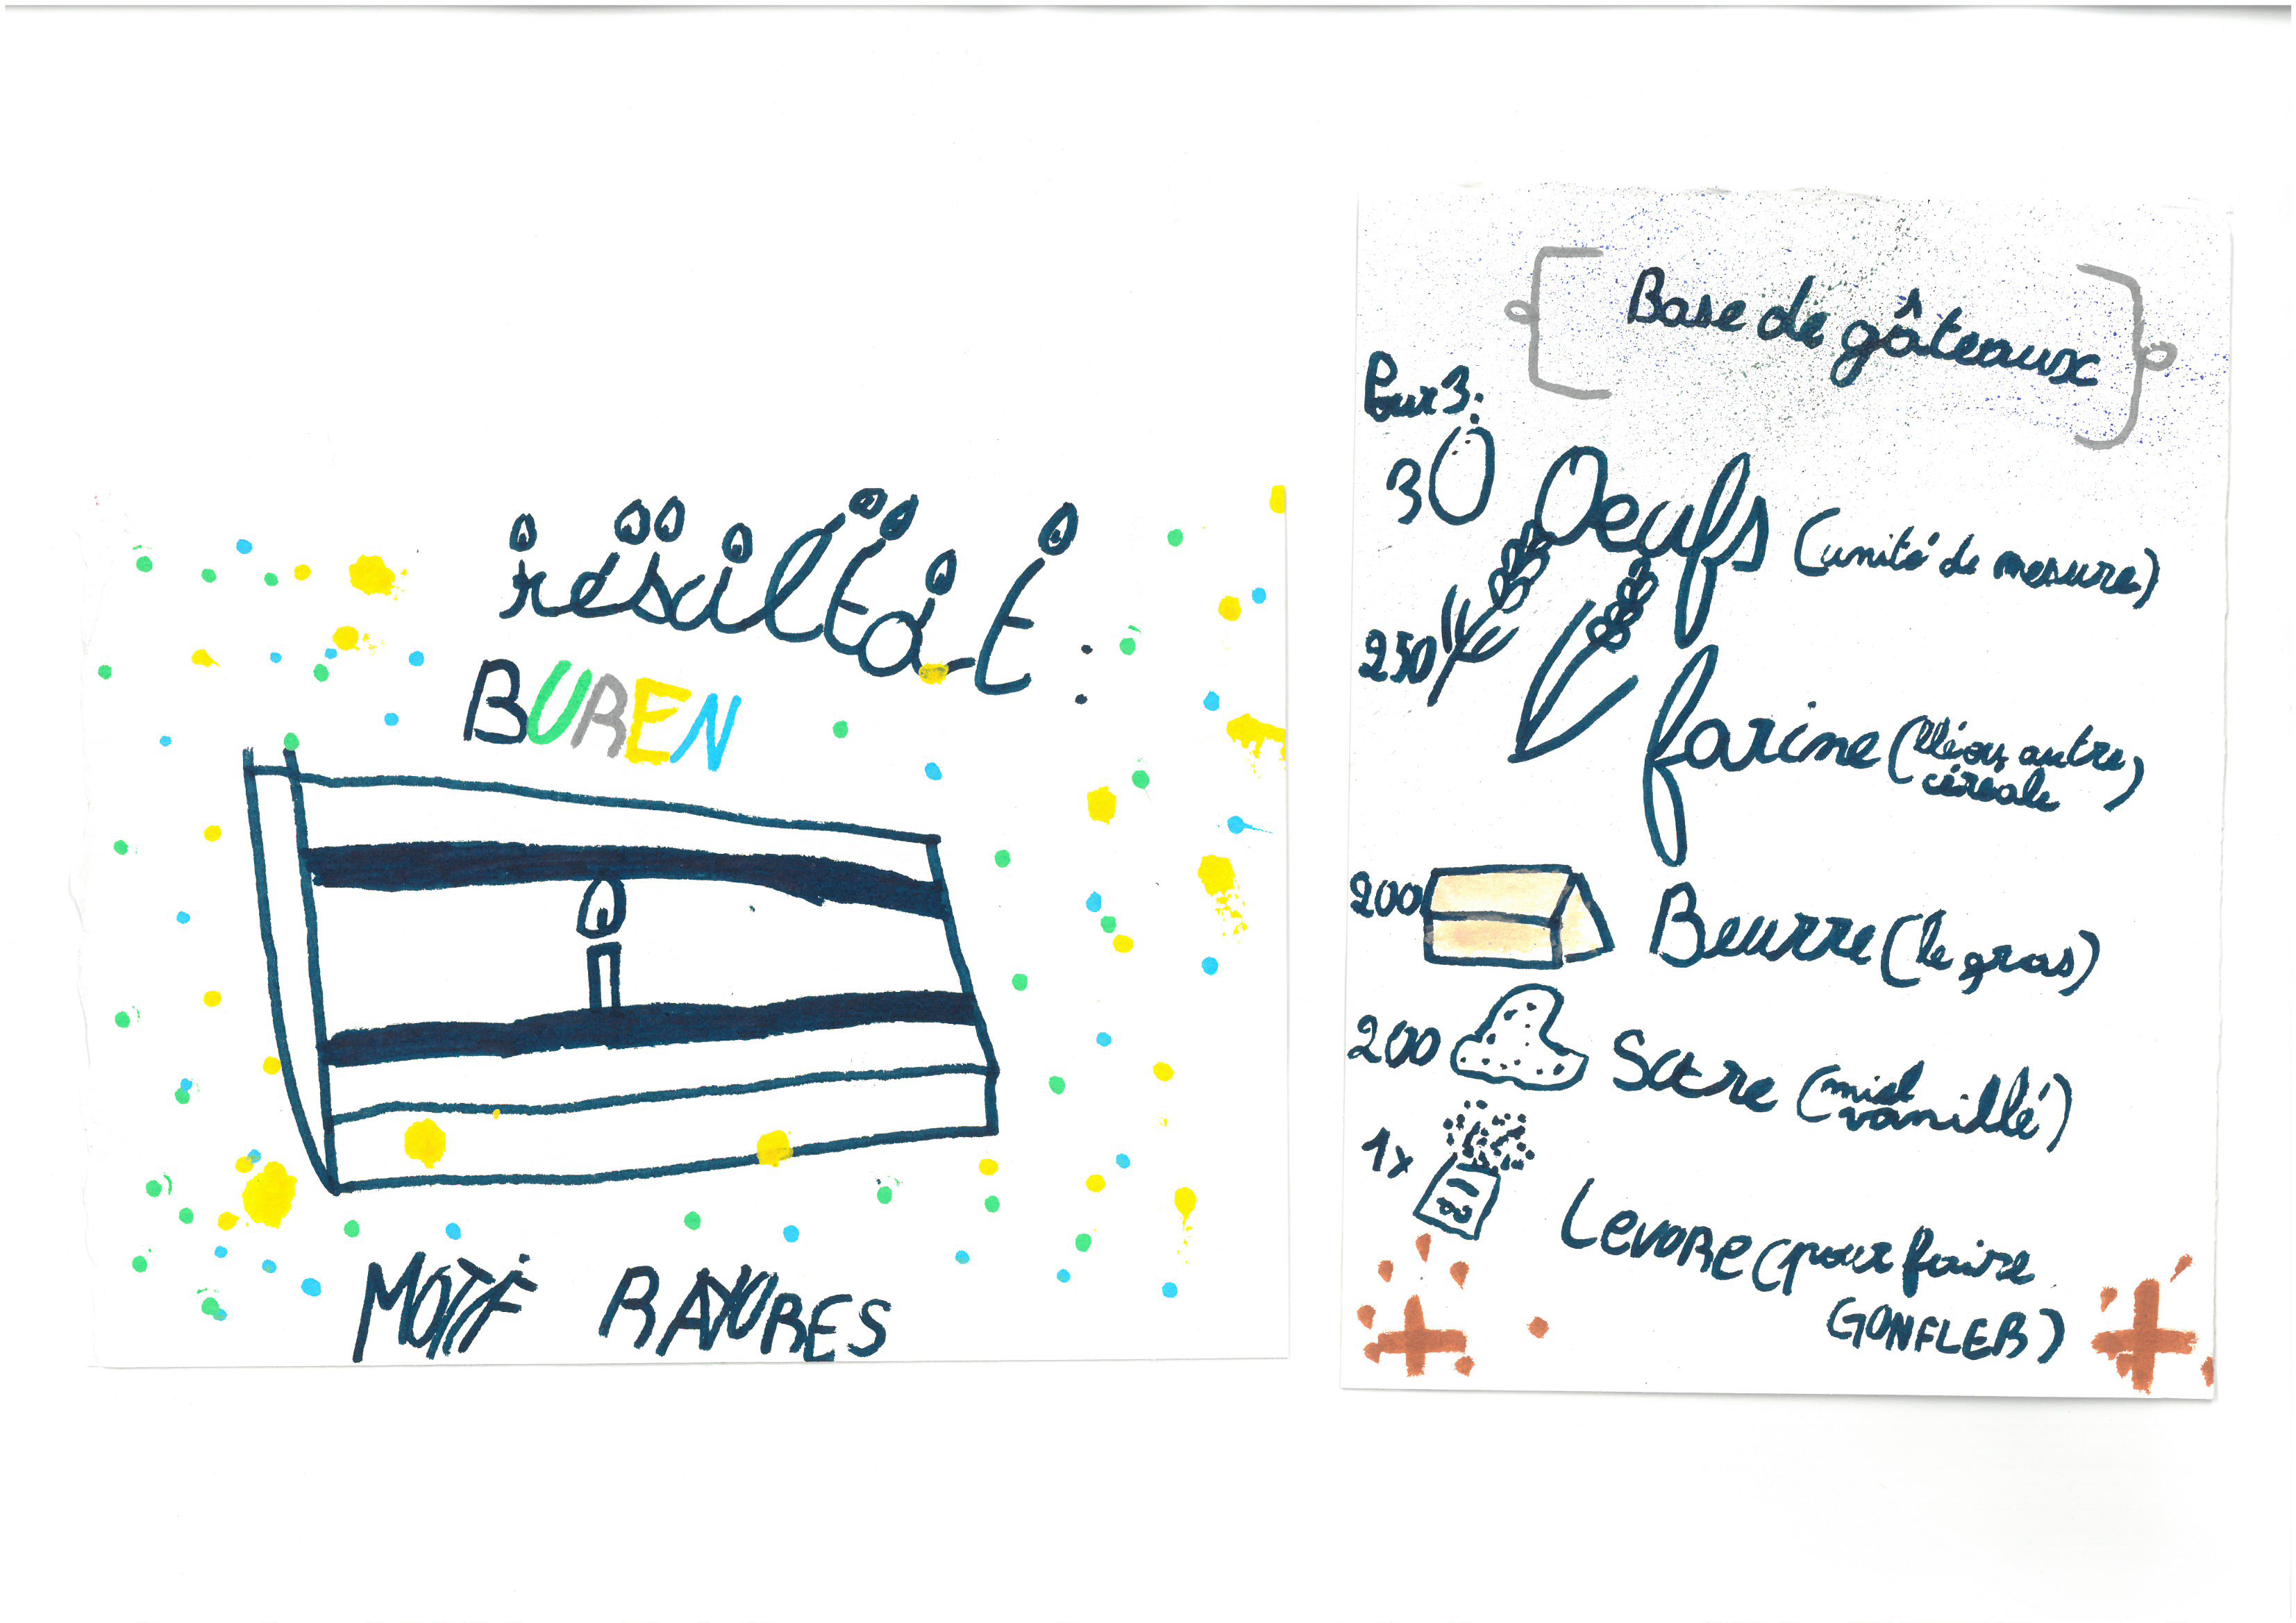 résultat :
BUREN
MOTIF RAYURES
Base de gâteaux
Pour 3:
3 Oeufs (unité de mesure)
250 farine (blé ou autre
céréale)
200 Beurre (le gras)
200 Sucre (miel
vanillé)
1x LEVURE (pour faire
GONFLER)